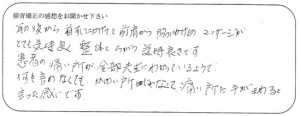 頻脊矯正の感想をお聞かせ下さい
耳の後から首すじにかけてと前肩から胸のための マッサージが
とても気持良く 整体とちがう 気持良さです
患者の痛い所が全部先生にわかっているようで
何も言わなくても かゆい所ではなくて 痛い所に手がまわると
言った感じです